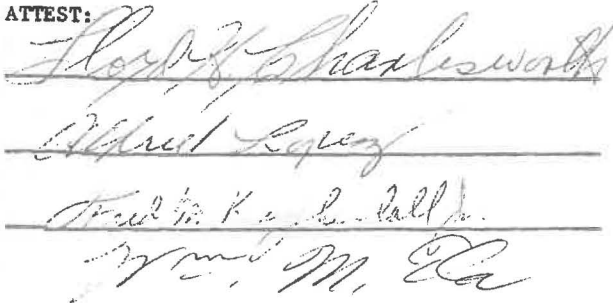 ATTEST:
Floyd H. Charlesworth
Alfred Lopez
Fred M.
Wm. M. Ela